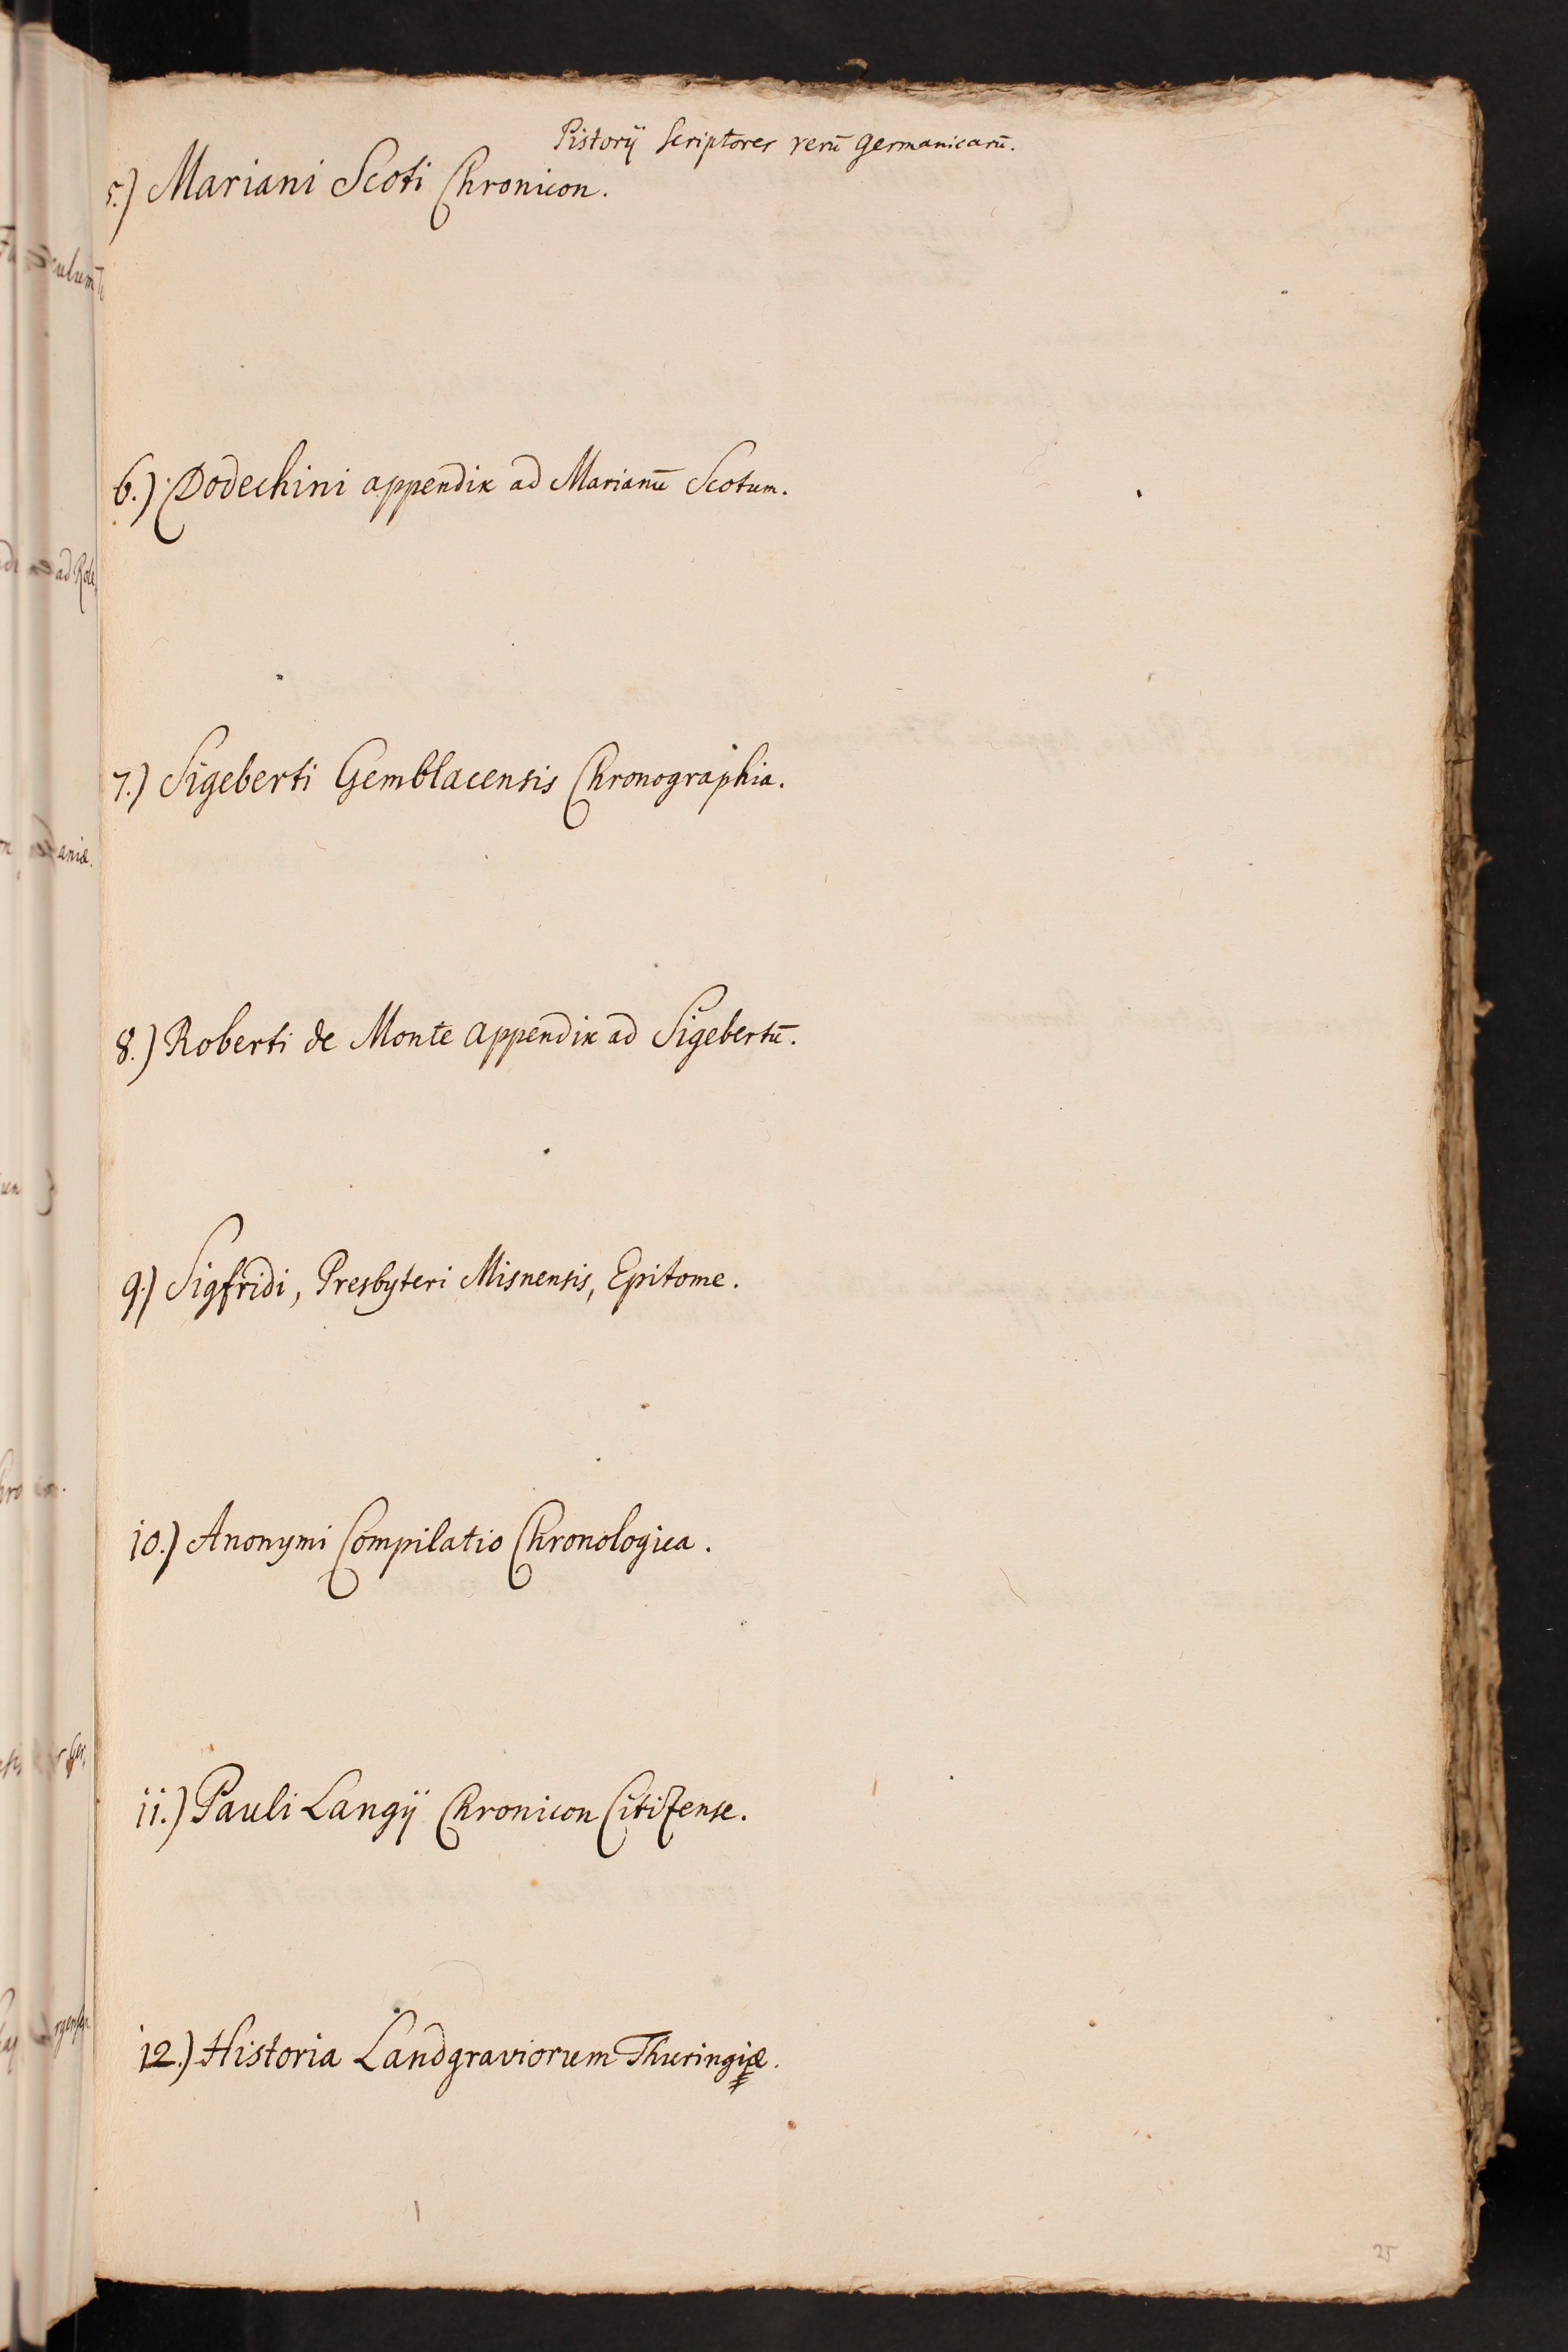 Pistorij Scriptores rerū germanicarū.
5.) Mariani Scoti Chronicon.
6.) Dodechini appendix ad Marianū Scotum.
7.) Sigeberti Gemblacensis Chronographia.
8.) Roberti de Monte appendix ad Sigebertū.
9.) Sigfridi, Presbyteri Misnensis, Epitome.
10.) Anonymi Compilatio Chronologica.
11.) Pauli Langij Chronicon Citizense.
12.) Historia Landgraviorum Thuringiæ.
25